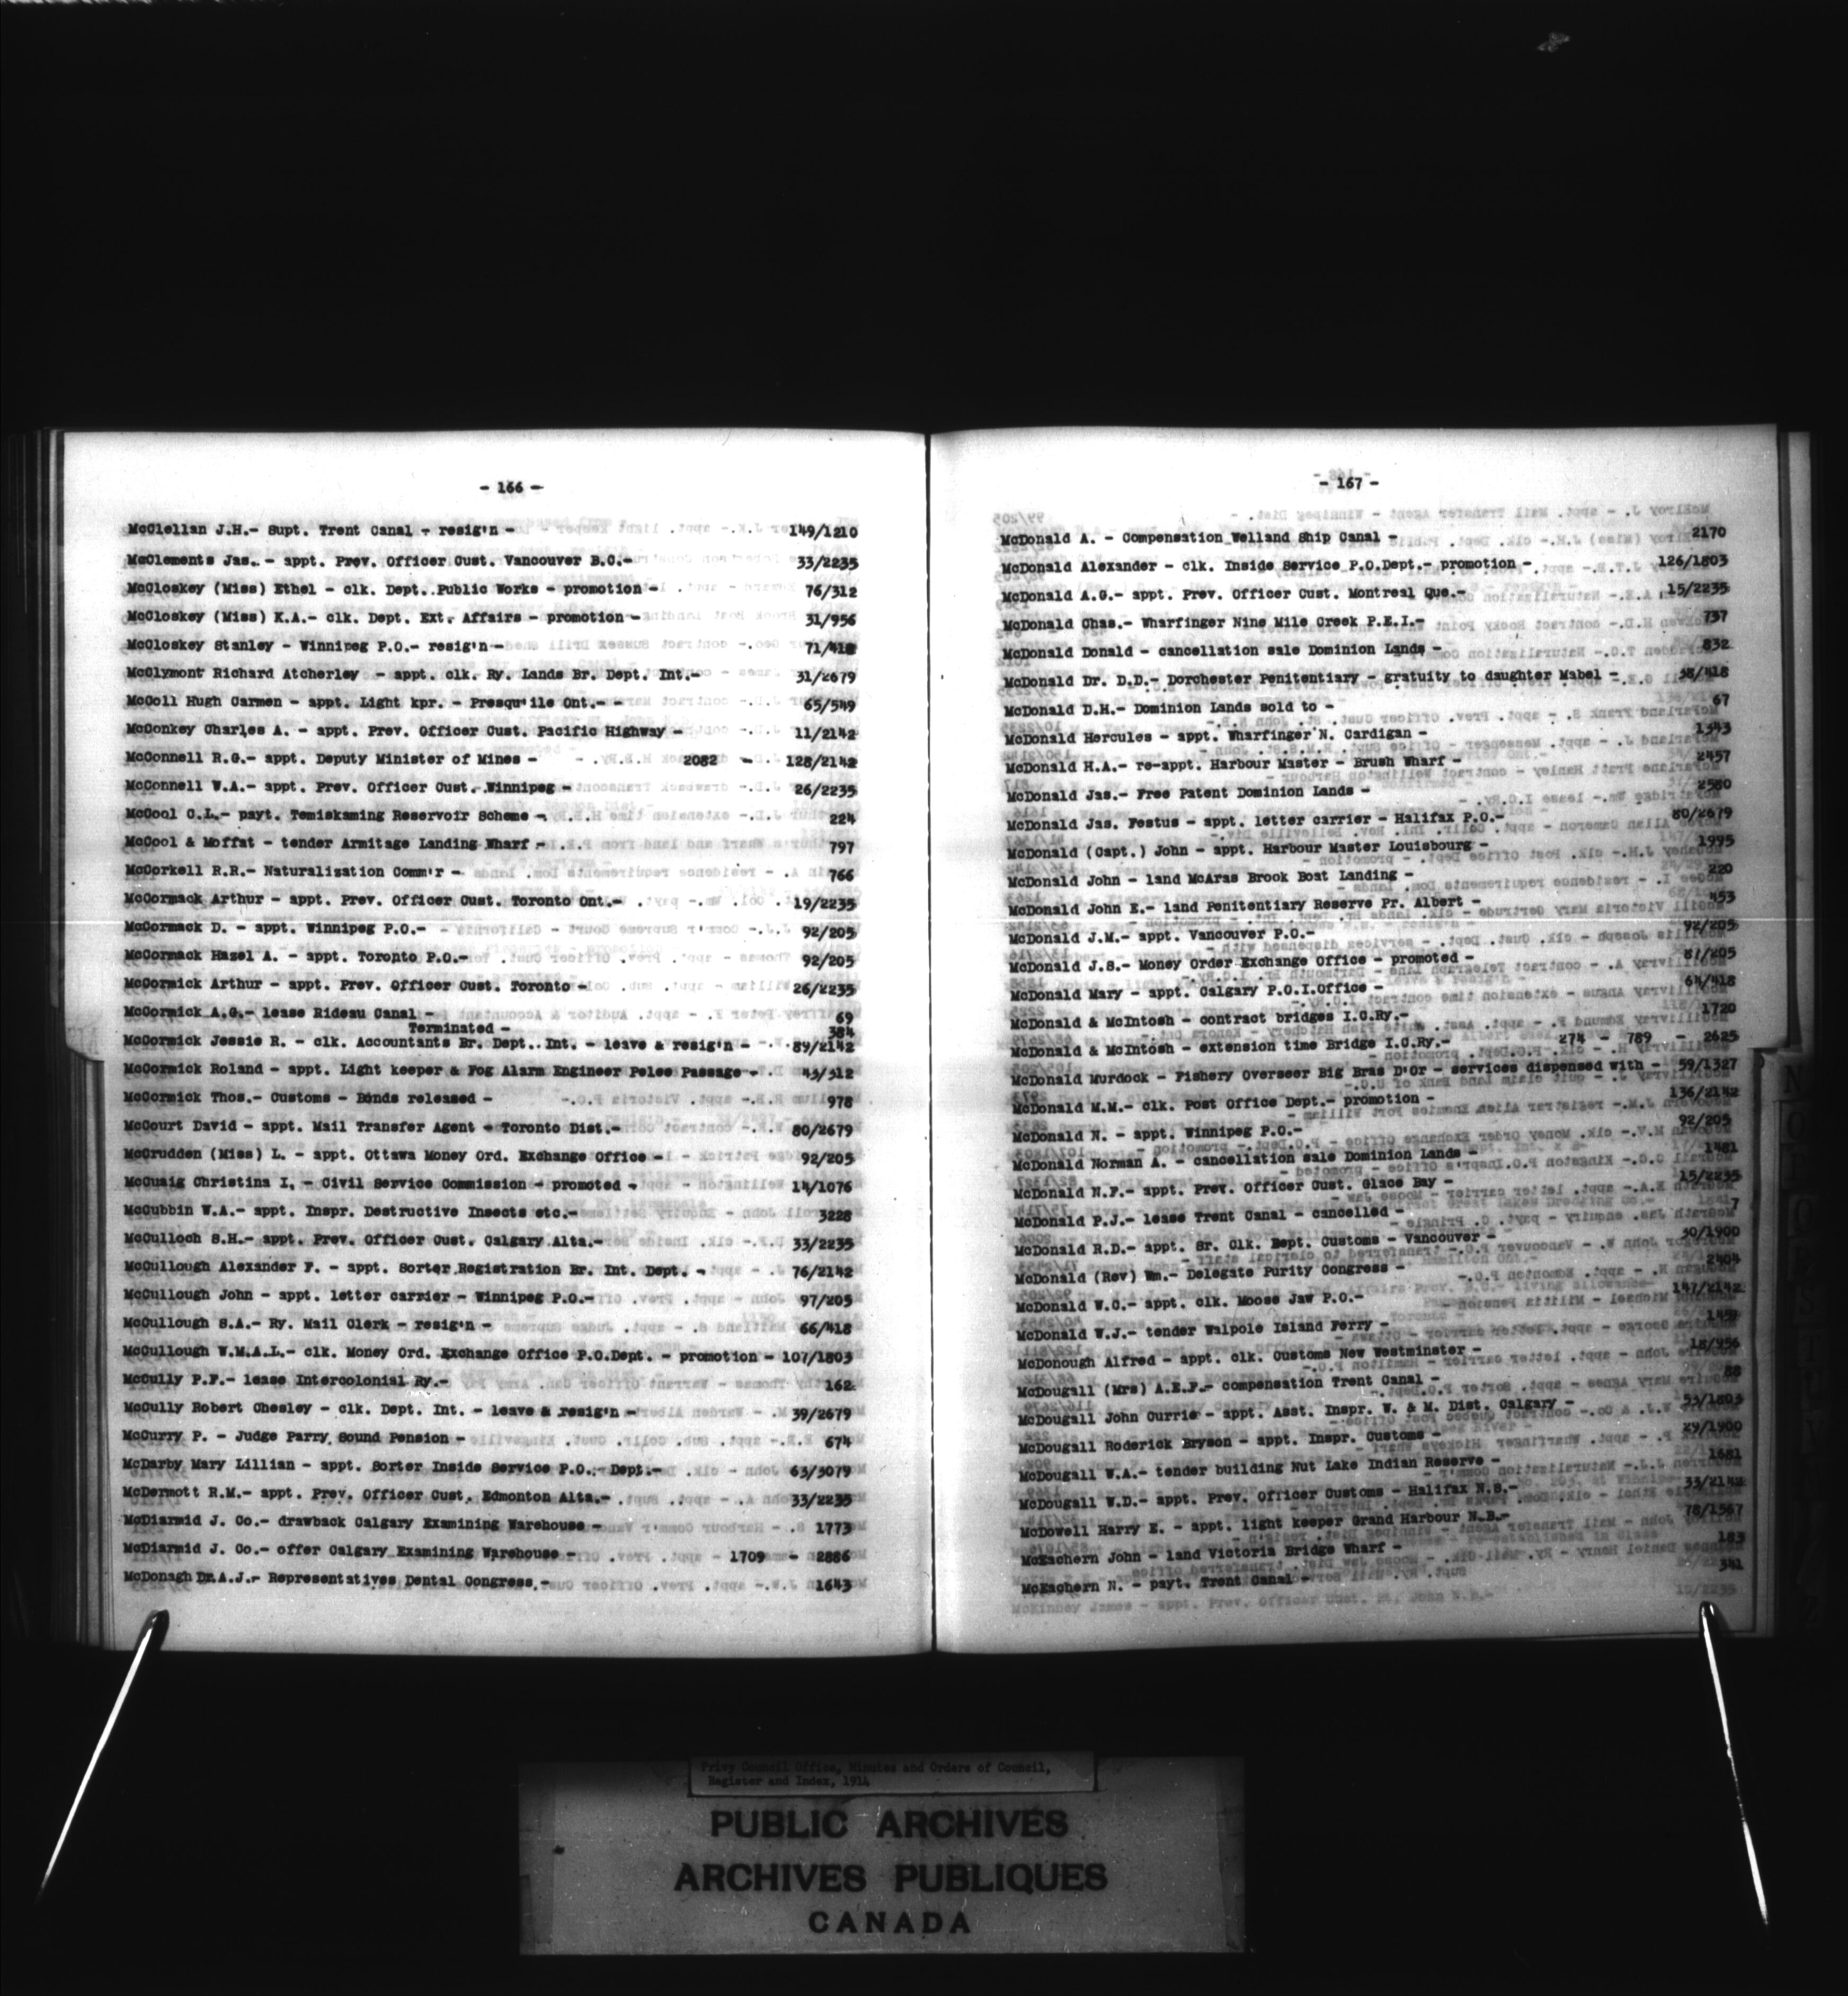 - 166 -
McClellan J.H.- Supt. Trent Canal - resig'n - 149/1210
McClements Jas. - appt. Prev. Officer Cust. Vancouver B.C.- 33/2235
McCloskey (Miss) Ethel - clk. Dept. Public Works - promotion - 76/312
McCloskey (Miss) K.A.- clk. Dept. Ext. Affairs - promotion - 31/956
McCloskey Stanley - Winnipeg P.O.- resig'n - 71/418
McClymont Richard Atcherley - appt. clk. Ry. Lands Br. Dept. Int.- 31/2679
McColl Hugh Carmen - appt. Light kpr. - Presqu'ile Ont.- - 65/549
McConkey Charles A. - appt. Prev. Officer Cust. Pacific Highway - 11/2142
McConnell R.G.- appt. Deputy Minister of Mines - 2082 - 128/2142
McConnell W.A.- appt. Prev. Officer Cust. Winnipeg - 26/2235
McCool C.L.- payt. Temiskaming Reservoir Scheme - 224
McCool & Moffat - tender Armitage Landing Wharf - 797
McCorkell R.R.- Naturalization Comm'r - 766
McCormack Arthur - appt. Prev. Officer Cust. Toronto Ont.- 19/2235
McCormack D. - appt. Winnipeg P.O.- 92/205
McCormack Hazel A. - appt. Toronto P.O.- 92/205
McCormick Arthur - appt. Prev. Officer Cust. Toronto - 26/2235
McCormick A.G.- lease Rideau Canal - 69
Terminated - 384
McCormick Jessie R. - clk. Accountants Br. Dept. Int. - leave & resig'n - 89/2142
McCormick Roland - appt. Light keeper & Fog Alarm Engineer Pelee Passage - 43/312
McCormick Thos.- Customs - Bonds released - 978
McCourt David - appt. Mail Transfer Agent - Toronto Dist.- 80/2679
McCrudden (Miss) L. - appt. Ottawa Money Ord. Exchange Office - 92/205
McCuaig Christina I. - Civil Service Commission - promoted - 14/1076
McCubbin W.A.- appt. Inspr. Destructive Insects etc.- 3228
McCulloch S.H.- appt. Prev. Officer Cust. Calgary Alta.- 33/2235
McCullough Alexander F. - appt. Sorter Registration Br. Int. Dept. - 76/2142
McCullough John - appt. letter carrier - Winnipeg P.O.- 97/205
McCullough S.A.- Ry. Mail Clerk - resig'n - 66/418
McCullough W.M.A.L.- clk. Money Ord. Exchange Office P.O.Dept. - promotion - 107/1803
McCully P.F.- lease Intercolonial Ry.- 162
McCully Robert Chesley - clk. Dept. Int. - leave & resig'n - 39/2679
McCurry P. - Judge Parry Sound Pension - 674
McDarby Mary Lillian - appt. Sorter Inside Service P.O. Dept.- 63/3079
McDermott R.M.- appt. Prev. Officer Cust. Edmonton Alta.- 33/2235
McDiarmid J. Co.- drawback Calgary Examining Warehouse - 1773
McDiarmid J. Co.- offer Calgary Examining Warehouse - 1709 - 2886
McDonagh Dr.A.J.- Representatives Dental Congress - 1643
- 167 -
McDonald A. - Compensation Welland Ship Canal - 2170
McDonald Alexander - clk. Inside Service P.O.Dept.- promotion - 126/1803
McDonald A.G.- appt. Prev. Officer Cust. Montreal Que.- 15/2235
McDonald Chas.- Wharfinger Nine Mile Creek P.E.I.- 737
McDonald Donald - cancellation sale Dominion Lands - 832
McDonald Dr. D.D.- Dorchester Penitentiary - gratuity to daughter Mabel - 38/418
McDonald D.H.- Dominion Lands sold to - 67
McDonald Hercules - appt. Wharfinger N. Cardigan - 1343
McDonald H.A.- re-appt. Harbour Master - Brush Wharf - 2457
McDonald Jas.- Free Patent Dominion Lands - 2580
McDonald Jas. Festus - appt. letter carrier - Halifax P.O.- 80/2679
McDonald (Capt.) John - appt. Harbour Master Louisbourg - 1995
McDonald John - land McAras Brook Boat Landing - 220
McDonald John E.- land Penitentiary Reserve Pr. Albert - 453
McDonald J.M.- appt. Vancouver P.O.- 92/205
McDonald J.S.- Money Order Exchange Office - promoted - 87/205
McDonald Mary - appt. Calgary P.O.I.Office - 64/418
McDonald & McIntosh - contract bridges I.C.Ry.- 1720
McDonald & McIntosh - extension time Bridge I.C.Ry.- 274 - 789 - 2625
McDonald Murdock - Fishery Overseer Big Bras D'Or - services dispensed with - 59/1327
McDonald M.M.- clk. Post Office Dept.- promotion - 136/2142
McDonald N. - appt. Winnipeg P.O.- 92/205
McDonald Norman A. - cancellation sale Dominion Lands - 1481
McDonald N.F.- appt. Prev. Officer Cust. Glace Bay - 15/2235
McDonald P.J.- lease Trent Canal - cancelled - 7
McDonald R.D.- appt. Sr. Clk. Dept. Customs - Vancouver - 30/1900
McDonald (Rev) Wm.- Delegate Purity Congress - 2404
McDonald W.C.- appt. clk. Moose Jaw P.O.- 147/2142
McDonald W.J.- tender Walpole Island Ferry -
McDonough Alfred - appt. clk. Customs New Westminster - 18/956
McDougall (Mrs) A.E.F.- compensation Trent Canal - 88
McDougall John Currie - appt. Asst. Inspr. W. & M. Dist. Calgary - 53/1803
McDougall Roderick Bryson - appt. Inspr. Customs - 29/1900
McDougall W.A.- tender building Nut Lake Indian Reserve - 1681
McDougall W.D.- appt. Prev. Officer Customs - Halifax N.S.- 33/2142
McDowell Harry E. - appt. light keeper Grand Harbour N.B.- 78/1567
McEachern John - land Victoria Bridge Wharf - 183
McEachern N. - payt. Trent Canal - 341
Privy Council Office, Minutes and Orders of Council,
Register and Index, 1914
PUBLIC ARCHIVES
ARCHIVES PUBLIQUES
CANADA